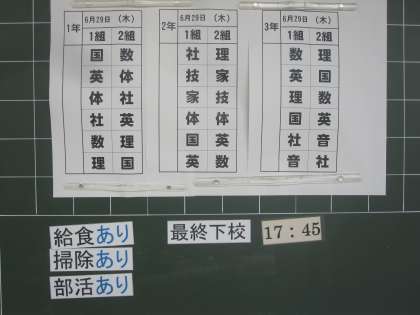 1年 6月29日 (木)
1組 2組
国 数
英 体
体 社
社 英
数 理
理 国
2年 6月29日 (木)
1組 2組
社 理
技 家
家 技
体 体
国 英
英 数
3年 6月29日 (木)
1組 2組
数 理
英 国
理 数
国 英
社 音
音 社
給食あり 最終下校 17:45
掃除あり
部活あり